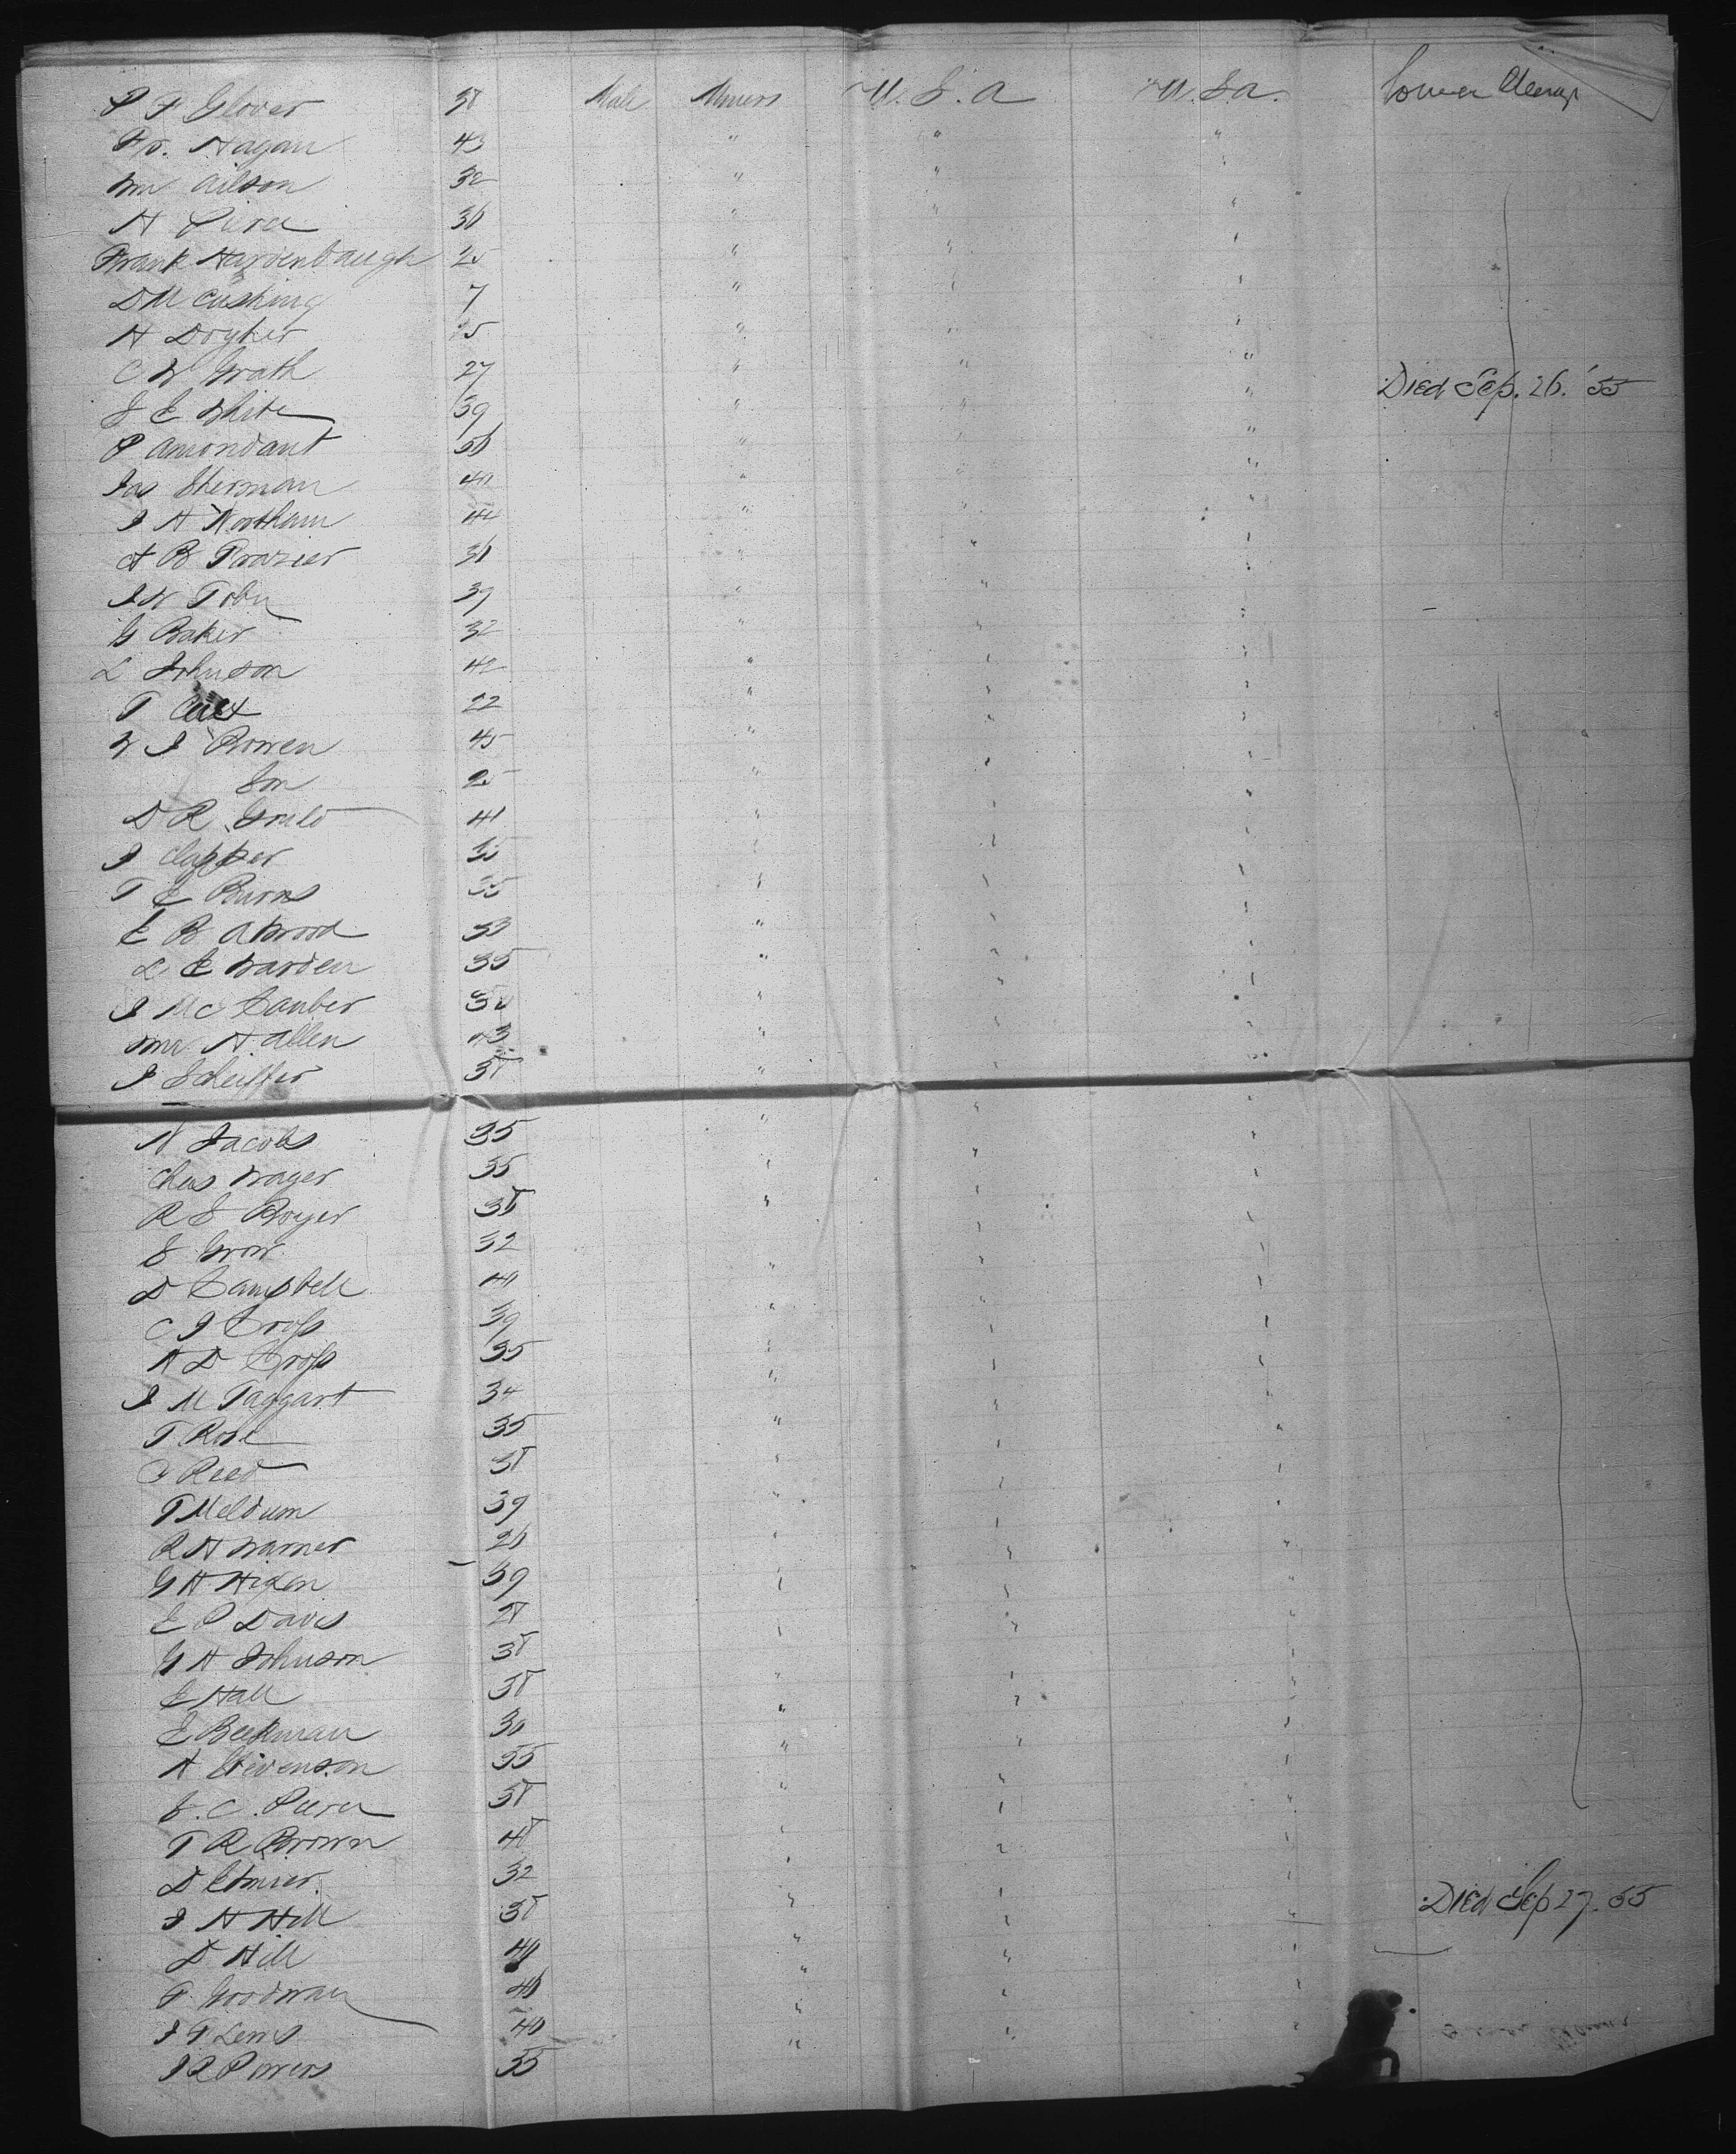 P F Glover 38 Male Miners U. S. A U. S a.
Hagan 43 " " "
Wm Wilson 32 " " "
H Pierce 36 " " "
Frank Hardenbaugh 25 " " "
D M Cushing 7 " " "
H Dogher 25 " " "
C W Grath 27 " " "
S E White 39 " " " Died Sep. 26. '55
P Amondant 36 " " "
Jas Sherman 40 " " "
J H Northam 44 " " "
A B Frazier 36 " " "
J W Toby 39 " " "
G Baker 32 " " "
L Johnson 42 " " "
T 22 " " "
W J Bowen 45 " " "
Son 25 " " "
D R Gould 41 " " "
J Clapper 35 " " "
T E Burns 35 " " "
E B Atwood 33 " " "
L E Warden 35 " " "
J Mc 30 " " "
Wm H. Allen 43 " " "
J Scheiffer 38 " " "
N Jacobs 35 " " "
Chas Wager 35 " " "
R S Boyer 38 " " "
S Grow 32 " " "
D Campbell 40 " " "
C J Cross 39 " " "
H D Cross 35 " " "
J M Taggart 34 " " "
T Rose 35 " " "
J Reed 38 " " "
T Meldum 39 " " "
R H Warner 26 " " "
G H Higden 39 " " "
E P Davis 28 " " "
G H Johnson 38 " " "
E Hall 38 " " "
E Beekman 30 " " "
A Stevenson 35 " " "
S. C. Pierce 38 " " "
T R Brown 48 " " "
D Elmer 32 " " "
J H Hill 38 " " " Died Sep 27. 55
D Hill 40 " " "
P. Goodman 46 " " "
J T Lewis 40 " " "
J R Powers 35